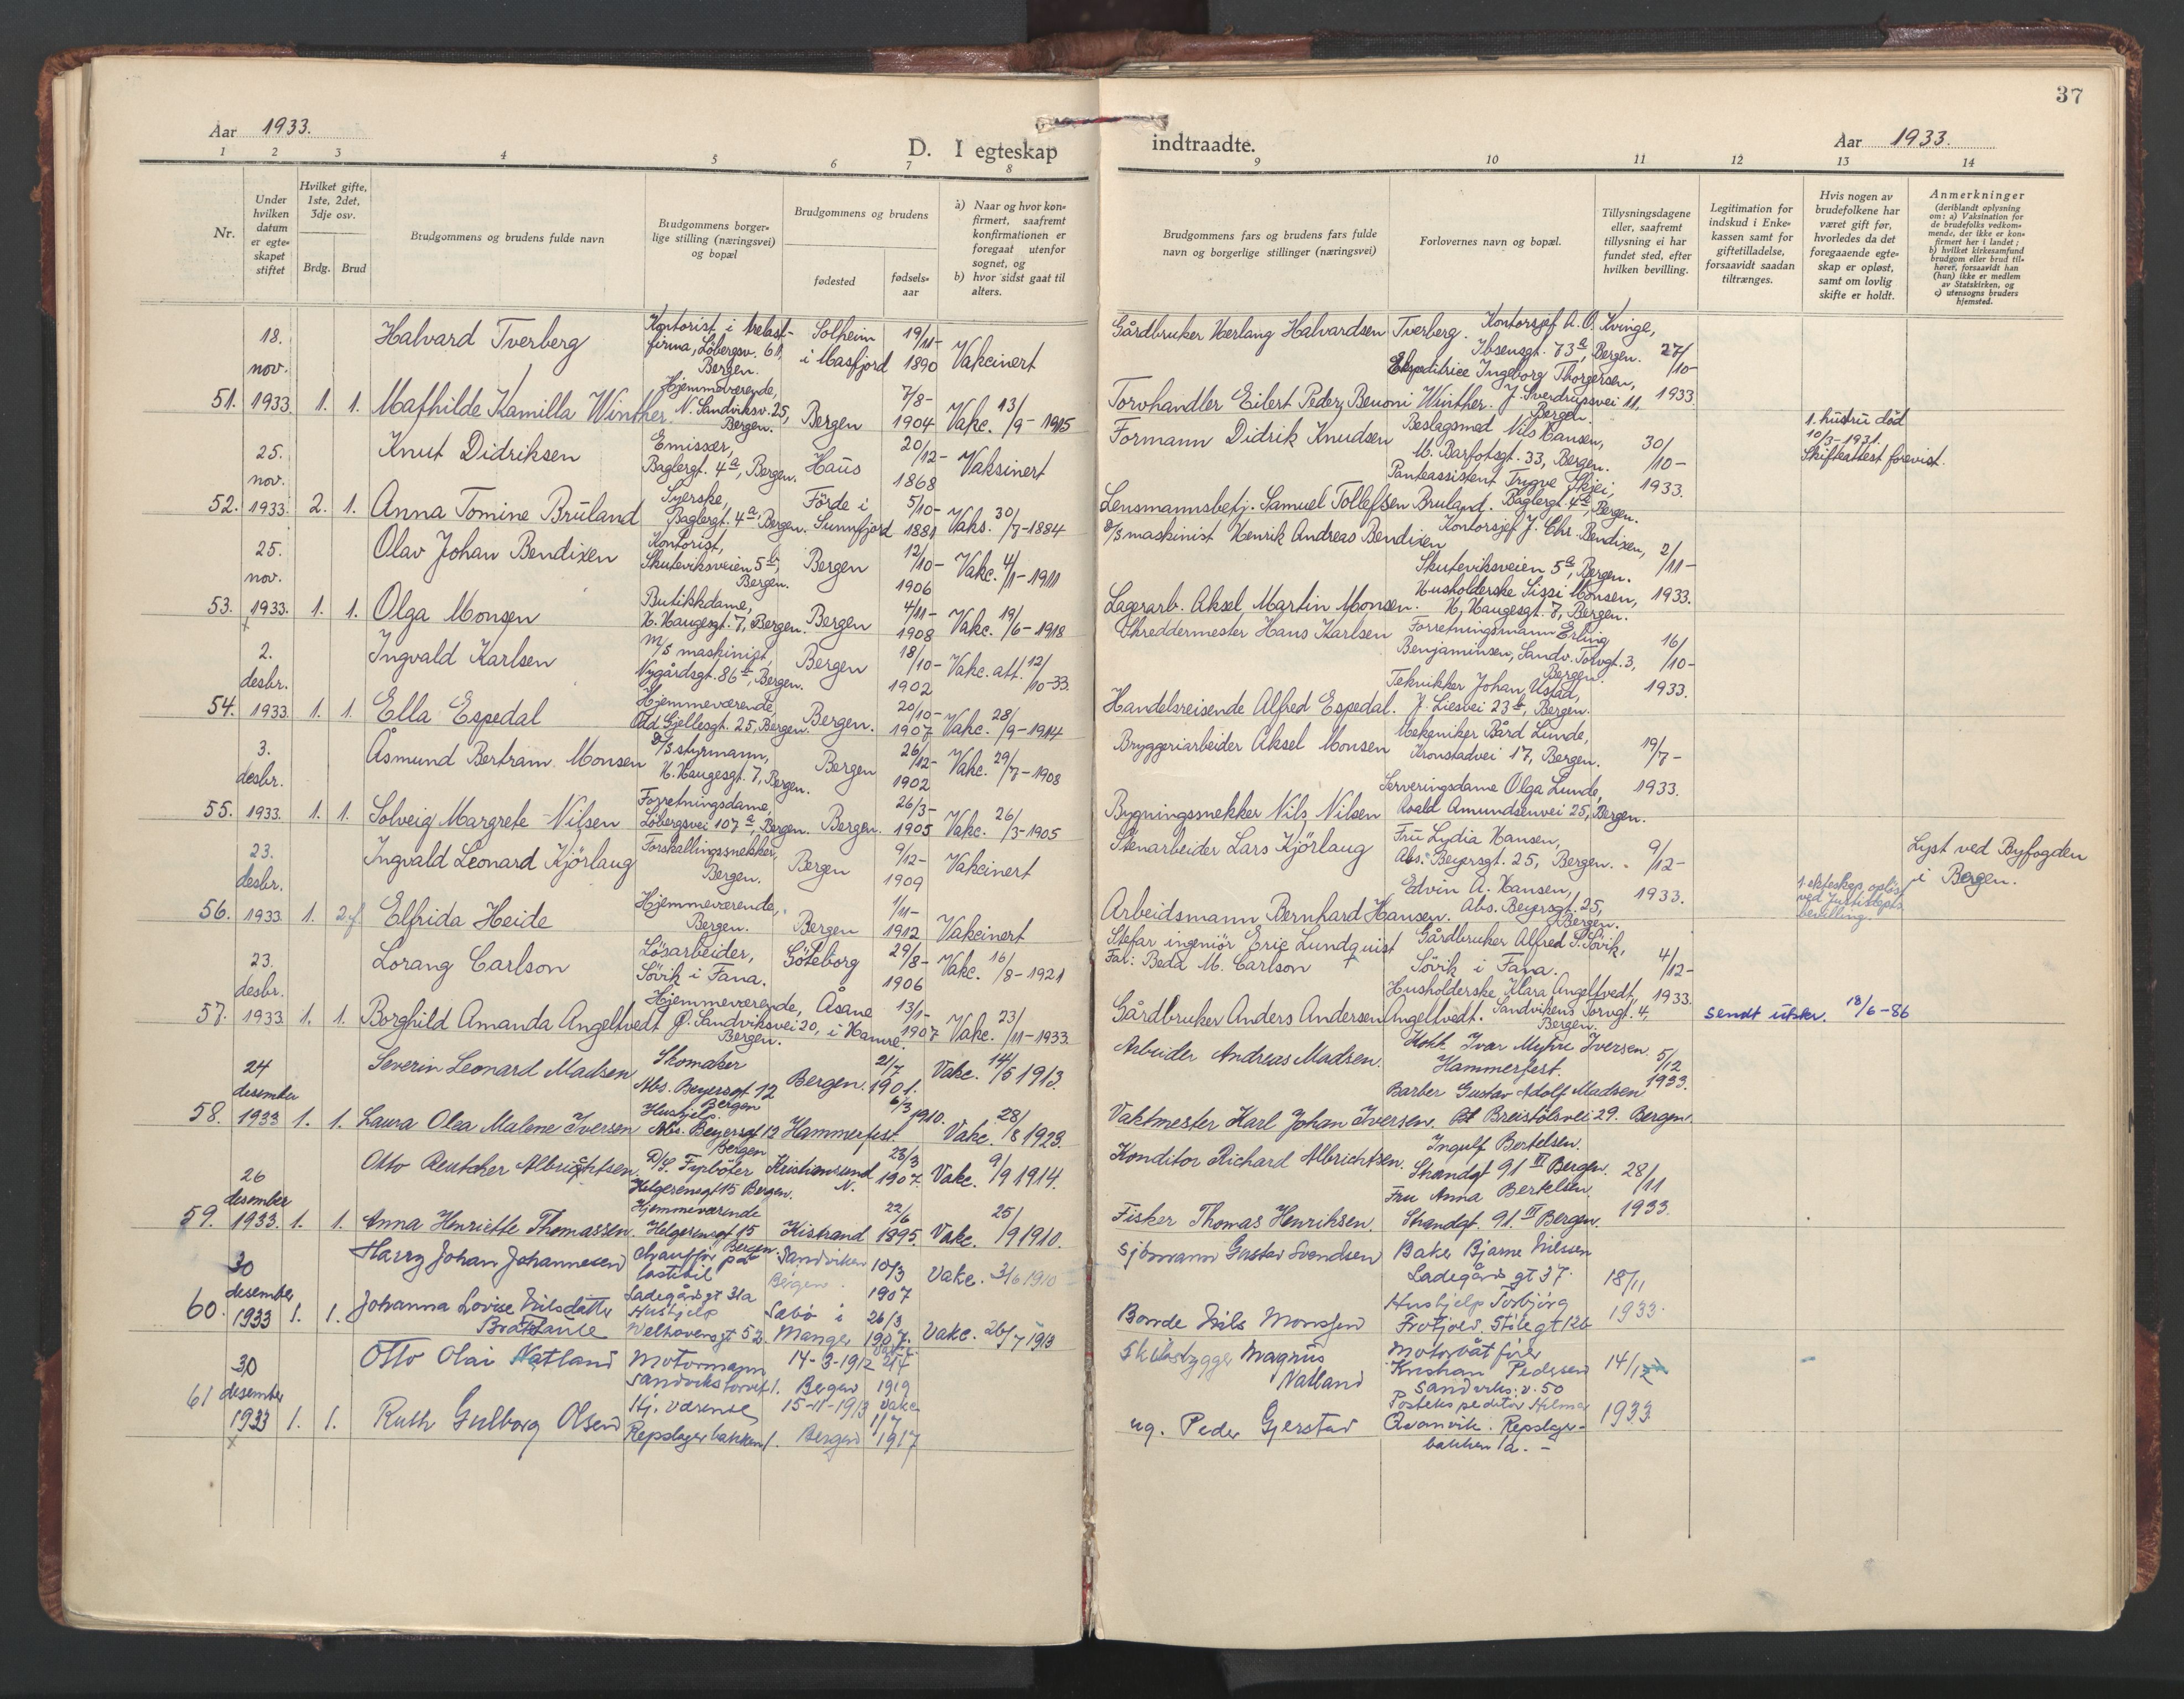 37
Aar 1933.
D. I egteskap indtraadte.
Aar 1933.
1 2 3 4 5 6 7 8 9 10 11 12 13 14
Nr.
Under hvilken datum er egteskapet stiftet
Hvilket gifte, 1ste, 2det, 3dje osv.
Brdg. Brud
Brudgommens og brudens fulde navn
Brudgommens borgerlige stilling (næringsvei) og bopæl
Brudgommens og brudens
fødested
fødselsaar
a) Naar og hvor konfirmert, saafremt konfirmationen er foregaat utenfor sognet, og
b) hvor sidst gaat til alters.
Brudgommens fars og brudens fars fulde navn og borgerlige stillinger (næringsvei)
Forlovernes navn og bopæl.
Tillysningsdagene eller, saafremt tillysning ei har fundet sted, efter hvilken bevilling.
Legitimation for indskud i Enkekassen samt for giftetilladelse, forsaavidt saadan tiltrænges.
Hvis nogen av brudefolkene har været gift før, hvorledes da det foregaaende egteskap er opløst, samt om lovlig skifte er holdt.
Anmerkninger
(deriblandt oplysning om: a) Vaksination for de brudefolks vedkommende, der ikke er konfirmert her i landet; b) hvilket kirkesamfund brudgom eller brud tilhører, forsaavidt han (hun) ikke er medlem av Statskirken, og c) utensogns bruders hjemsted.
51. 18. nov. 1933 1. 1.
Halvard Tverberg
Kontorist i trelastfirma, Löbergsv. 61, Bergen.
Solheim i Masfjord
19/11-1890
Vakcinert
Gårdbruker Herlaug Halvardsen Tverberg.
Kontorsjef A. O. Kvinge, Ibsensgt. 73a, Bergen.
27/10-1933
Mathilde Kamilla Winther
Hjemmeværende, N. Sandviksv. 25, Bergen.
Bergen
7/8-1904
Vakc. 13/9-1915
Torvhandler Eilert Peder Benoni Winther.
Ekspeditrice Ingeborg Thorgersen, J. Sverdrupsvei 11, Bergen.
52. 25. nov. 1933. 2. 1.
Knut Didriksen
Emissær, Baglergt. 4a, Bergen.
Haus
20/12-1868
Vaksinert
Formann Didrik Knudsen
Beslagsmed Nils Hansen, M. Barfotsgt. 33, Bergen.
30/10-1933.
1. hustru död 10/3-1931. Skifteattest forevist.
Anna Tomine Bruland
Syerske, Baglergt. 4a, Bergen.
Förde i Sunnfjord
5/10-1881
Vaks. 30/7-1884
Lensmannsbetj. Samuel Tollefsen Bruland.
Panteassistent Trygve Skjei, Baglergt. 4a, Bergen.
53. 25. nov. 1933. 1. 1.
Olav Johan Bendixen
Kontorist, Skuteviksveien 5a, Bergen.
Bergen
12/10-1906
Vakc. 4/1-1911
D/S maskinist Henrik Andreas Bendixen
Kontorsjef J. Chr. Bendixen, Skuteviksveien 5a, Bergen.
2/11-1933.
Olga Monsen
Butikkdame, H. Haugesgt. 7, Bergen.
Bergen
4/11-1908
Vakc. 19/6-1918
Lagerarb. Aksel Martin Monsen.
Husholderske Sissi Monsen, H. Haugesgt. 7, Bergen.
54. 2. desbr. 1933 1. 1.
Ingvald Karlsen
M/S maskinist, Nygårdsgt. 86a, Bergen.
Bergen
18/10-1902
Vakc. att. 12/10-33.
Skreddermester Hans Karlsen
Forretningsmann Erling Benjaminsen, Sandv. Torvgt. 3, Bergen.
16/10-1933.
Ella Espedal
Hjemmeværende, Odd Gjellesgt. 25, Bergen.
Bergen.
20/10-1907
Vakc. 28/9-1914
Handelsreisende Alfred Espedal.
Teknikker Johan Ustad, J. Liesvei 23b, Bergen.
55. 3. desbr. 1933. 1. 1.
Åsmund Bertram Monsen
D/S styrmann, H. Haugesgt. 7, Bergen.
Bergen
26/12-1902
Vakc. 29/7-1908
Bryggeriarbeider Aksel Monsen
Mekaniker Bård Lunde, Kronstadvei 17, Bergen.
19/7-1933.
Solveig Margrete Nilsen
Forretningsdame, Löbergsvei 107a, Bergen.
Bergen.
26/3-1905
Vakc. 26/3-1905
Bygningssnekker Nils Nilsen
Serveringsdame Olga Lunde, Roald Amundsenvei 25, Bergen.
56. 23. desbr. 1933 1. 2
Ingvald Leonard Kjörlaug
Forskallingssnekker, Bergen.
Bergen
9/12-1909
Vakcinert
Stenarbeider Lars Kjörlaug
Fru Lydia Hansen, Abs. Beyersgt. 25, Bergen.
9/12-1933
Lyst ved Byfogden i Bergen.
Elfrida Heide
Hjemmeværende, Bergen.
Bergen
1/11-1912
Vakcinert
Arbeidsmann Bernhard Hansen.
Edvin A. Hansen, Abs. Beyersgt. 25, Bergen.
1. ekteskap oplöst ved Justisdepts bevilling.
57. 23. desbr. 1933 1. 1.
Lorang Carlson
Lösarbeider, Sövik i Fana.
Göteborg
29/8-1906
Vakc. 16/8-1921
Stefar ingeniör Eric Lundquist
Far: Beda M. Carlson
Gårdbruker Alfred S. Sövik, Sövik i Fana.
4/12-1933
Borghild Amanda Angeltvedt
Hjemmeværende, Ö. Sandviksvei 20, Bergen.
Åsane i Hamre.
13/1-1907
Vakc. 23/11-1933.
Gårdbruker Anders Andersen Angeltvedt.
Husholderske Klara Angeltvedt, Sandvikens Torvgt. 4, Bergen.
Sendt utskr. 18/6-86
58. 24 desember 1933 1. 1.
Severin Leonard Madsen
Skomaker Abs. Beyersgt 12 Bergen
Bergen.
21/7 1901.
Vakc. 14/5 1913.
Arbeider Andreas Madsen.
Kokk Ivar Myhre Iversen. Hammerfest.
5/12 1933.
Laura Olea Malene Iversen
Hushjelp. Abs. Beyersgt 12 Bergen
Hammerfest.
6/3 1910.
Vakc. 28/8 1923.
Vaktmester Karl Johan Iversen.
Barber Gustav Adolf Madsen Breistölsvei 29. Bergen.
59. 26 desember 1933. 1. 1.
Otto Reutcher Albrichtsen.
D/S. Fyrböter Helgesensgt 15 Bergen.
Kristiansund N.
23/3 1907.
Vakc. 9/9 1914.
Konditor Richard Albrichtsen.
Ingulf Bertelsen. Strandgt 91 III Bergen.
28/11 1933.
Anna Henriette Thomassen.
Hjemmeværende Helgesensgt 15 Bergen.
Kistrand
22/6 1895.
Vakc. 25/9 1910.
Fisker Thomas Henriksen.
Fru Anna Bertelsen Strandgt. 91. III Bergen.
60. 30 desember 1933 1. 1.
Harry Johan Johannesen
Chauffør på lastebil Ladegårdsgt 31a
Sandviken Bergen.
10/3 1907
Vakc. 3/6 1910
Sjömann Gustav Svendsen
Baker Bjarne Nilssen Ladegårdsgt 37.
18/11 1933.
Johanna Lovise Nilsdatter
Hushjelp Welhavensgt 52
Sæbø i Manger
26/3 1907.
Vakc. 26/7 1913
Bonde Nils Monssen
Hushjelp Torbjörg Stölegt 12b
61 30 desember 1933 1. 1.
Otto Olai Natland
Motormann Sandvikstorvet 1.
14-3-1912 Bergen
1919
Skibsbygger Magnus Natland
Motorbåtfører Kristian Pedersen Sandviks. v. 50
1933.
Ruth Gulborg Olsen
Hj. værende Repslagerbakken 1.
15-11-1913 Bergen
Vakc. 1/7 1917
ug. Peder Gjerstad
Postekspeditör Hilmar Repslagerbakken 1a.